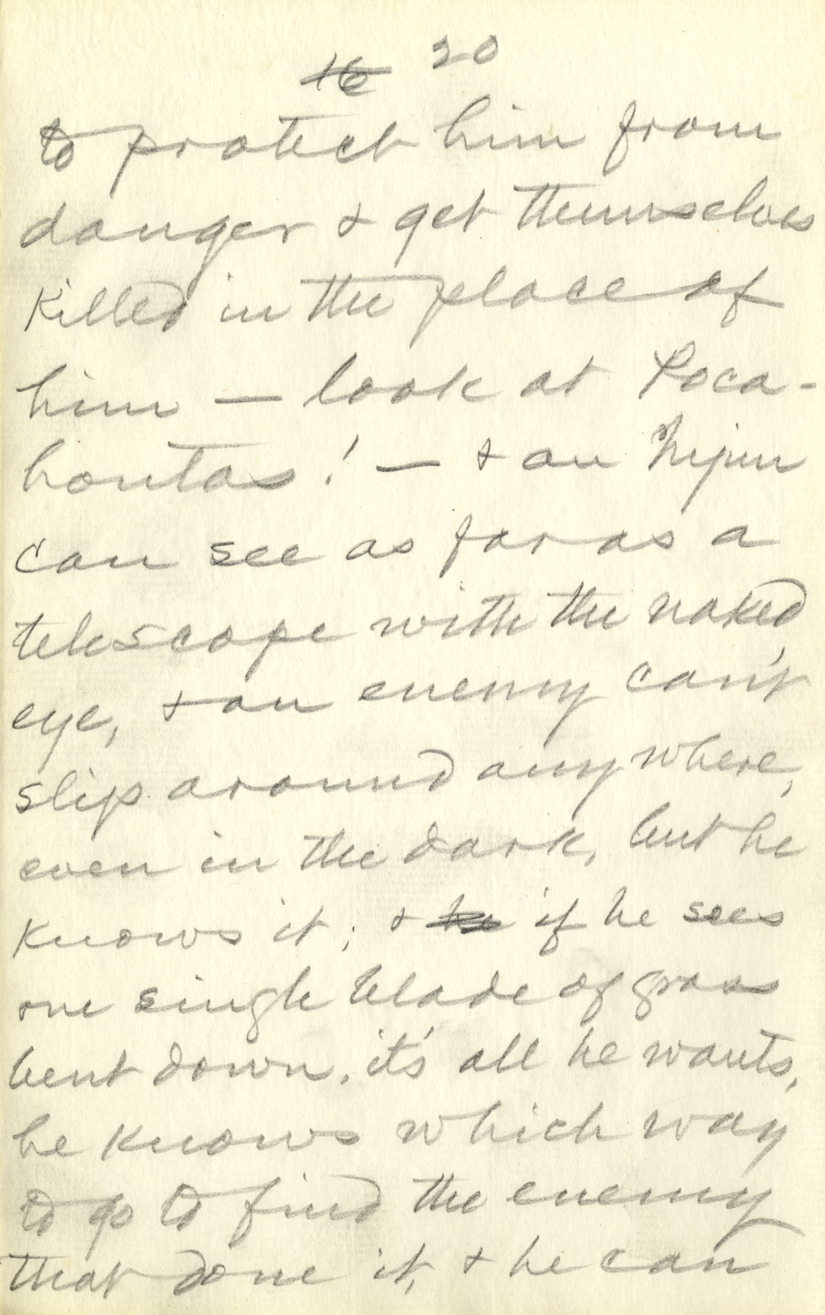 16 20
to protect him from
danger & get themselves
killed in the place of
him — look at Poca-
hontas! — & an Injun
can see as far as a
telescope with the naked
eye, & an enemy can't
slip around anywhere,
even in the dark, but he
knows it; & he if he sees
one single blade of grass
bent down, it's all he wants,
he knows which way
to go to find the enemy
that done it, & he can